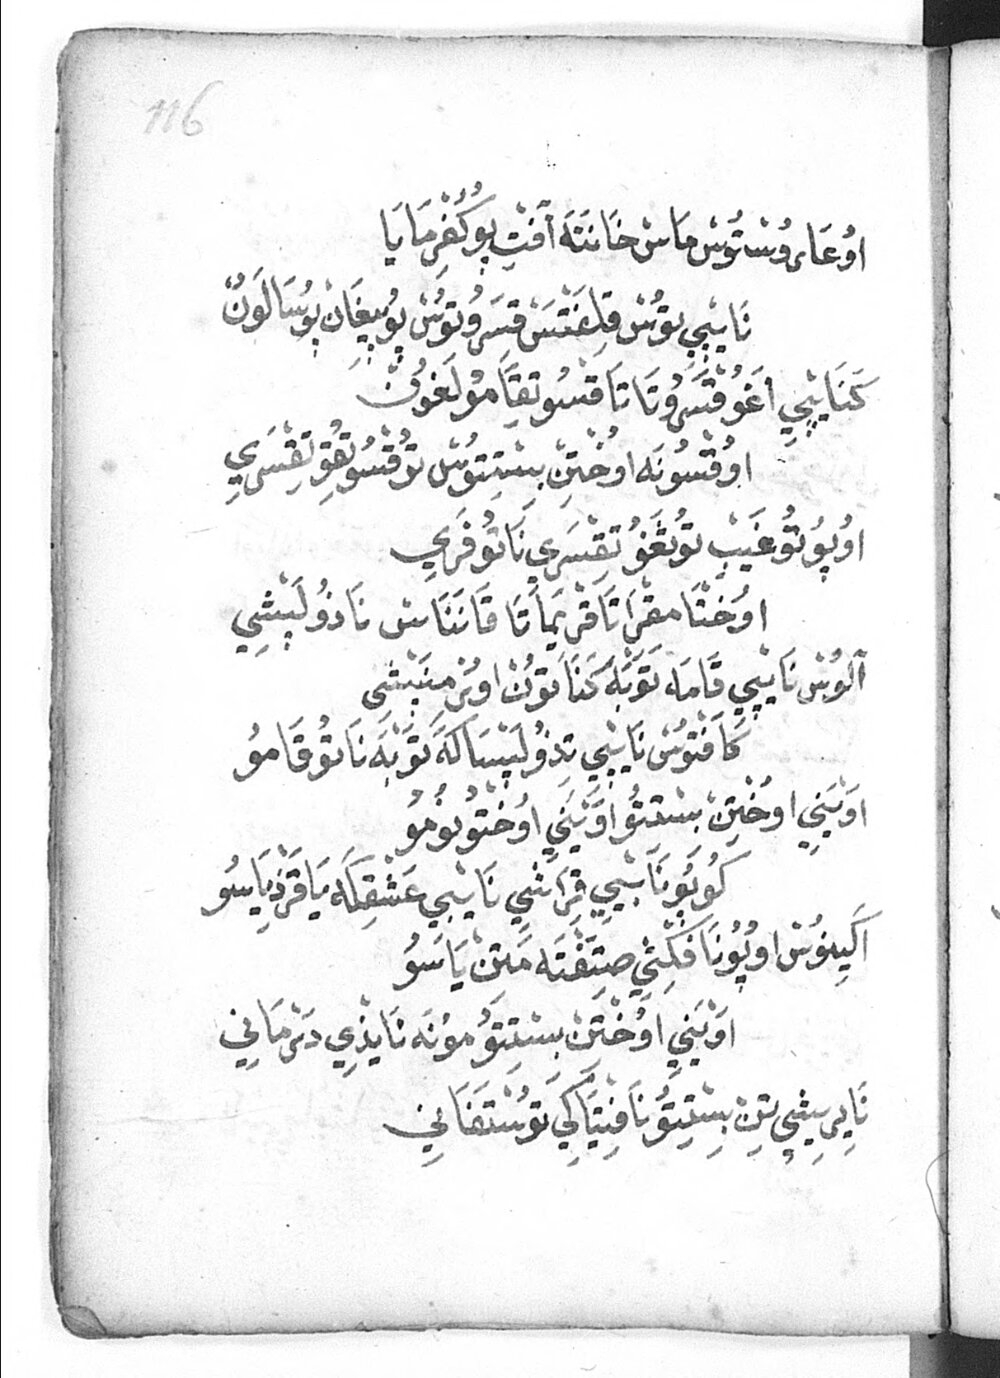 116
اوُعَاروُسْتوُسْ مَاسْ خَانَتَه آفْتِ پوُ كُفْرِمَايَا
نَاپِيْي تُوسْ قِلِغَتَسْ قسَروُتوُسْ پوُپِيغَانْ پوُسَالَوُنْ
كَنَاپِيْي اَغوُ قْسَروُتَا تَا قْسوُتِقَا موُلَغوُنْ
اوُقْسوُنَه اوُخْتِنْ بِسْتِتوُسْ توُقْسوُتُقوُ تِقْسَرِي
اوُپوُتوُ غَيْبْ توُتَغوُ تِقْسَرِي نَاتوُ فَرِي
اوُخْتَا مِقْرَا تَاقْرِيمَاتَا قَانَنَاسْ نَاذوُلَپْشِي
آلوُسْ نَاپِيْي قَامَه تَوْبَه كَنَا تُونْ اوُرْمِنَپْشِي
كَافْتوُسْ نَاپِيْي تِذوُلَپْسَاكَه تَوْبَه نَاتوُ قَاموُ
اوَنِيَنِي اوُخْتِنْ بِسْتِتوُ اوَنِيَنِي اوُخْتوُنوُموُ
كوُپوُنَاپِيْي قِرَاشِي نَاپِيْي عَشْقِكَه يَاقَرْذِيَاسوُ
اَكِينوُسْ اوُپوُنَا فِكِثِي صِتَفْتَه مَتِنْ يَاسوُ
اوَنِيَنِي اوُخْتِنْ بِسْتِتوُموُنَه نَايِذِي دَرْمَانِي
نَايِرِيشِي تِنْ بِسْتِتوُ نَافِنِيَاكِي توُسْتَفَانِي